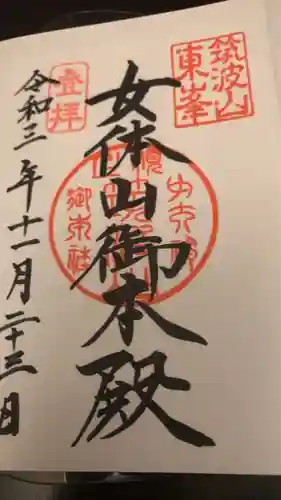 筑波山
東峯
女体山御本殿
登拝
令和三年十一月二十三日